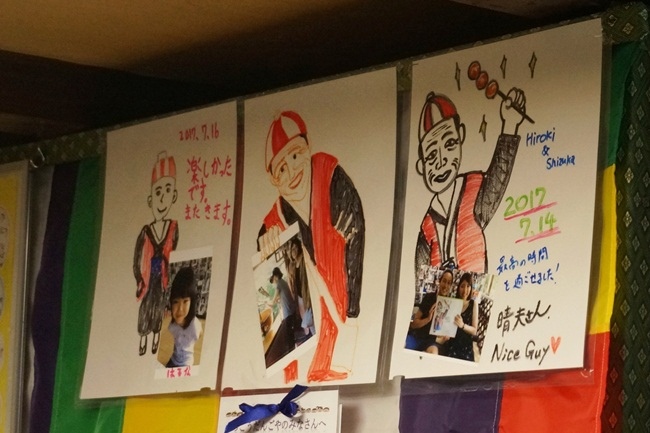 2017.7.16
楽しかった
です。
また きます。
Hiroki
&
Shizuka
2017
7.14
最高の時間
を過ごせました!
晴夫さん
Nice Guy
だんごやのみなさんへ